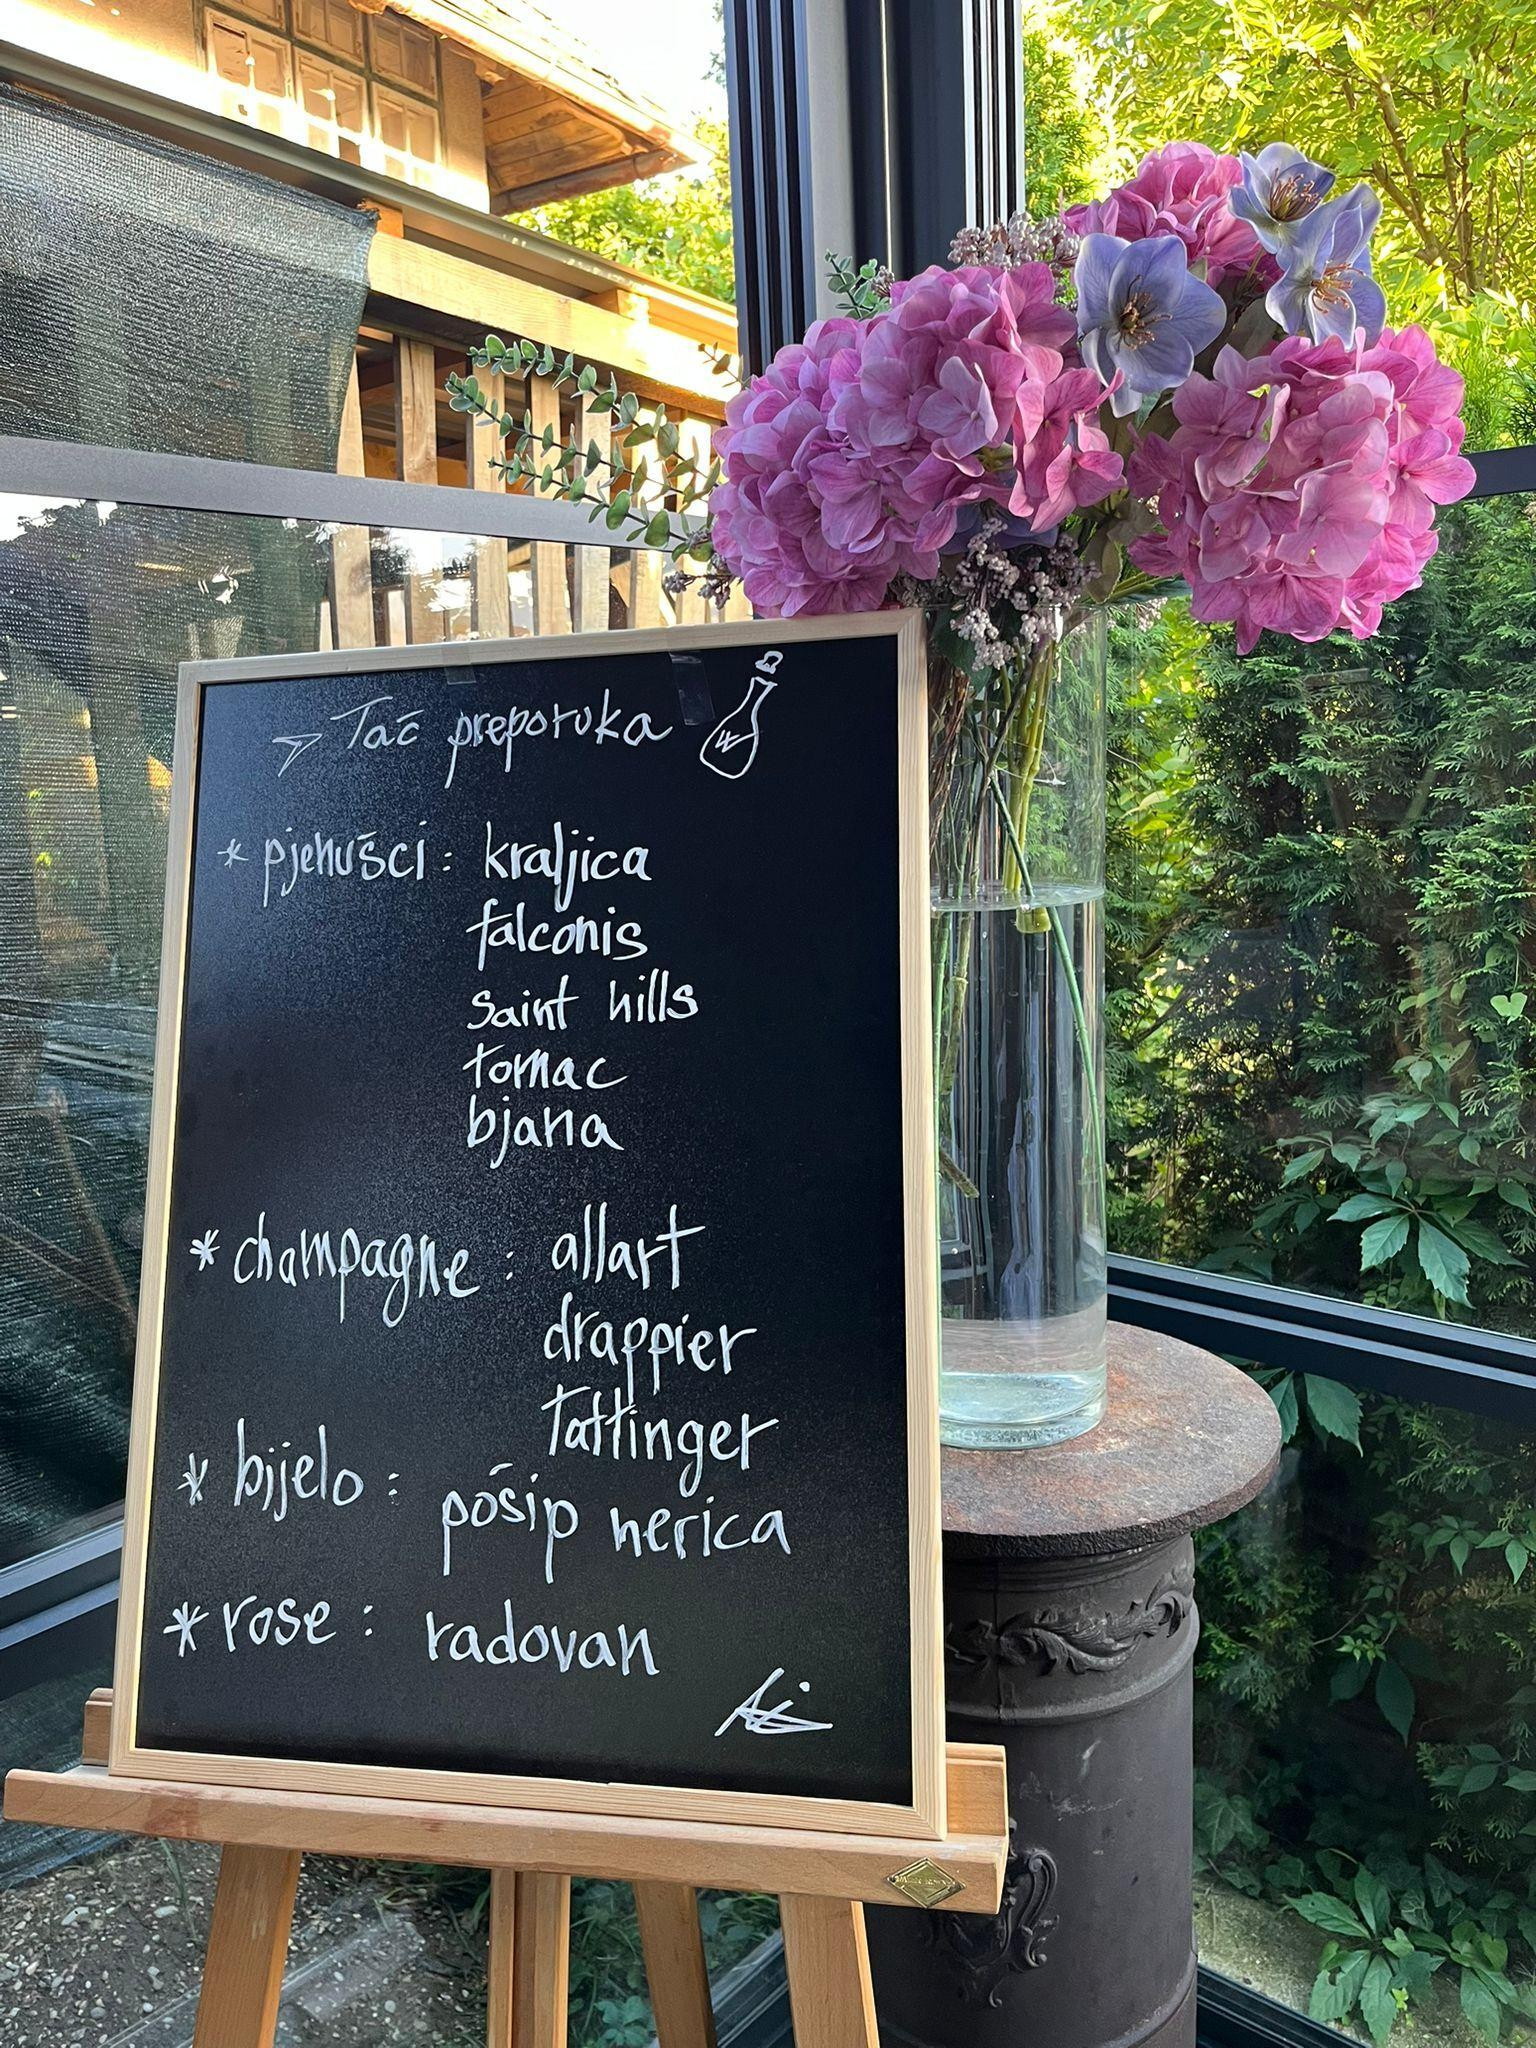 Tač preporuka
* pjenušci: kraljica
falconis
saint hills
tomac
bjana
* champagne: allart
drappier
Tattinger
* bijelo: pošip nerica
* rose: radovan